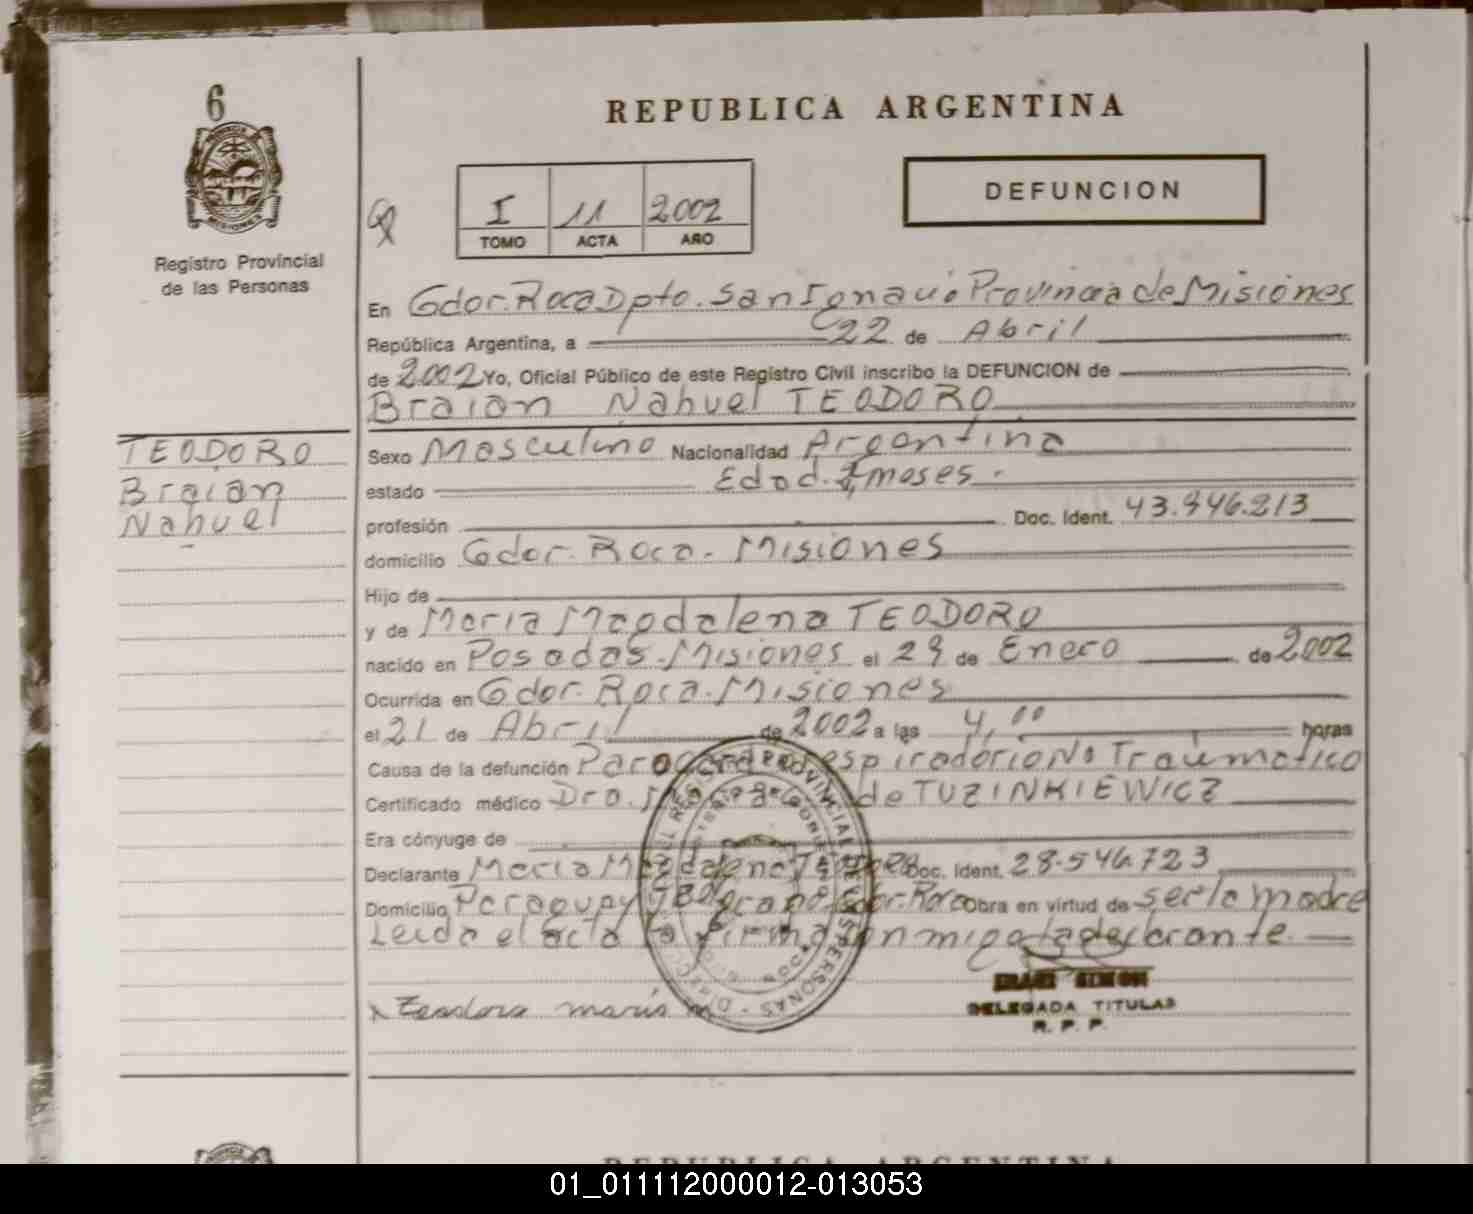 6
REPUBLICA ARGENTINA
DEFUNCION
I 11 2002
TOMO ACTA AÑO
Registro Provincial
de las Personas
En Gdor. Roca Dpto. San Ignacio Provincia de Misiones
República Argentina, a 22 de Abril
de 2002 Yo, Oficial Público de este Registro Civil inscribo la DEFUNCION de
Braian Nahuel TEODORO
TEODORO
Braian
Nahuel
Sexo Masculino Nacionalidad Argentina
estado Edad. meses.
profesión Doc. Ident.
domicilio Gdor. Roca. Misiones
Hijo de
y de Maria Magdalena TEODORO
nacido en Posadas. Misiones el 29 de Enero de 2002
Ocurrida en Gdor. Roca. Misiones
el 21 de Abril de 2002 a las 4,00 horas
Causa de la defunción Paro cardio respiradorio No Traumatico
Certificado médico Dra. de TUZINKIEWICZ
Era cónyuge de
Declarante Maria Magdalena Doc. Ident. 28.546.723
Domicilio Paraguay y Belgrano. Gdor. Roca Obra en virtud de ser la madre
Leida el acta la firma con migo la declarante.
x Teodoro maria m
DELEGADA TITULAR
R. P. P.
REPUBLICA ARGENTINA
01_011112000012-013053